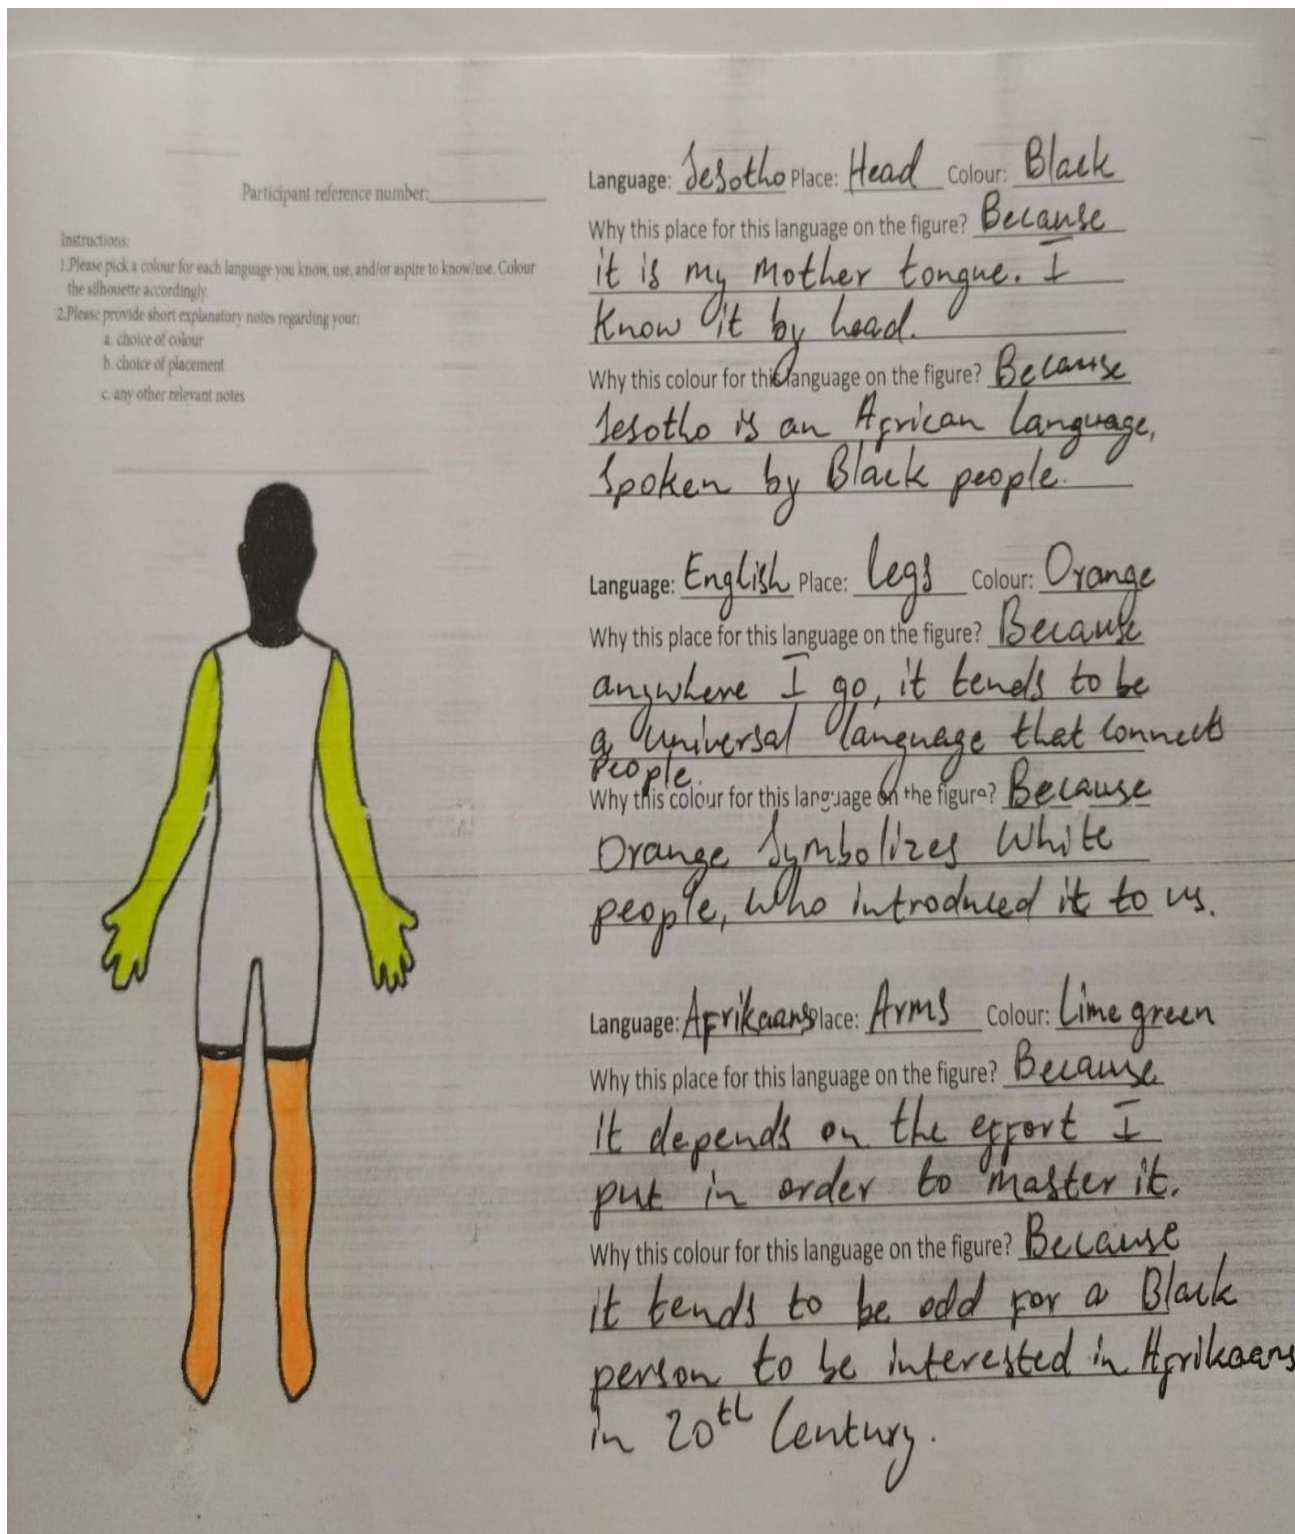 Participant reference number:__________
Instructions:
1.Please pick a colour for each language you know, use, and/or aspire to know/use. Colour
the silhouette accordingly.
2.Please provide short explanatory notes regarding your:
a. choice of colour
b. choice of placement
c. any other relevant notes
Language: Sesotho Place: Head Colour: Black
Why this place for this language on the figure? Because
it is my mother tongue. I
know it by head.
Why this colour for this language on the figure? Because
Sesotho is an African language,
spoken by Black people.
Language: English Place: legs Colour: Orange
Why this place for this language on the figure? Because
anywhere I go, it tends to be
a universal language that connects
people.
Why this colour for this language on the figure? Because
Orange symbolizes White
people, who introduced it to us.
Language: Afrikaans Place: Arms Colour: Lime green
Why this place for this language on the figure? Because
it depends on the effort I
put in order to master it.
Why this colour for this language on the figure? Because
it tends to be odd for a Black
person to be interested in Afrikaans
in 20th Century.